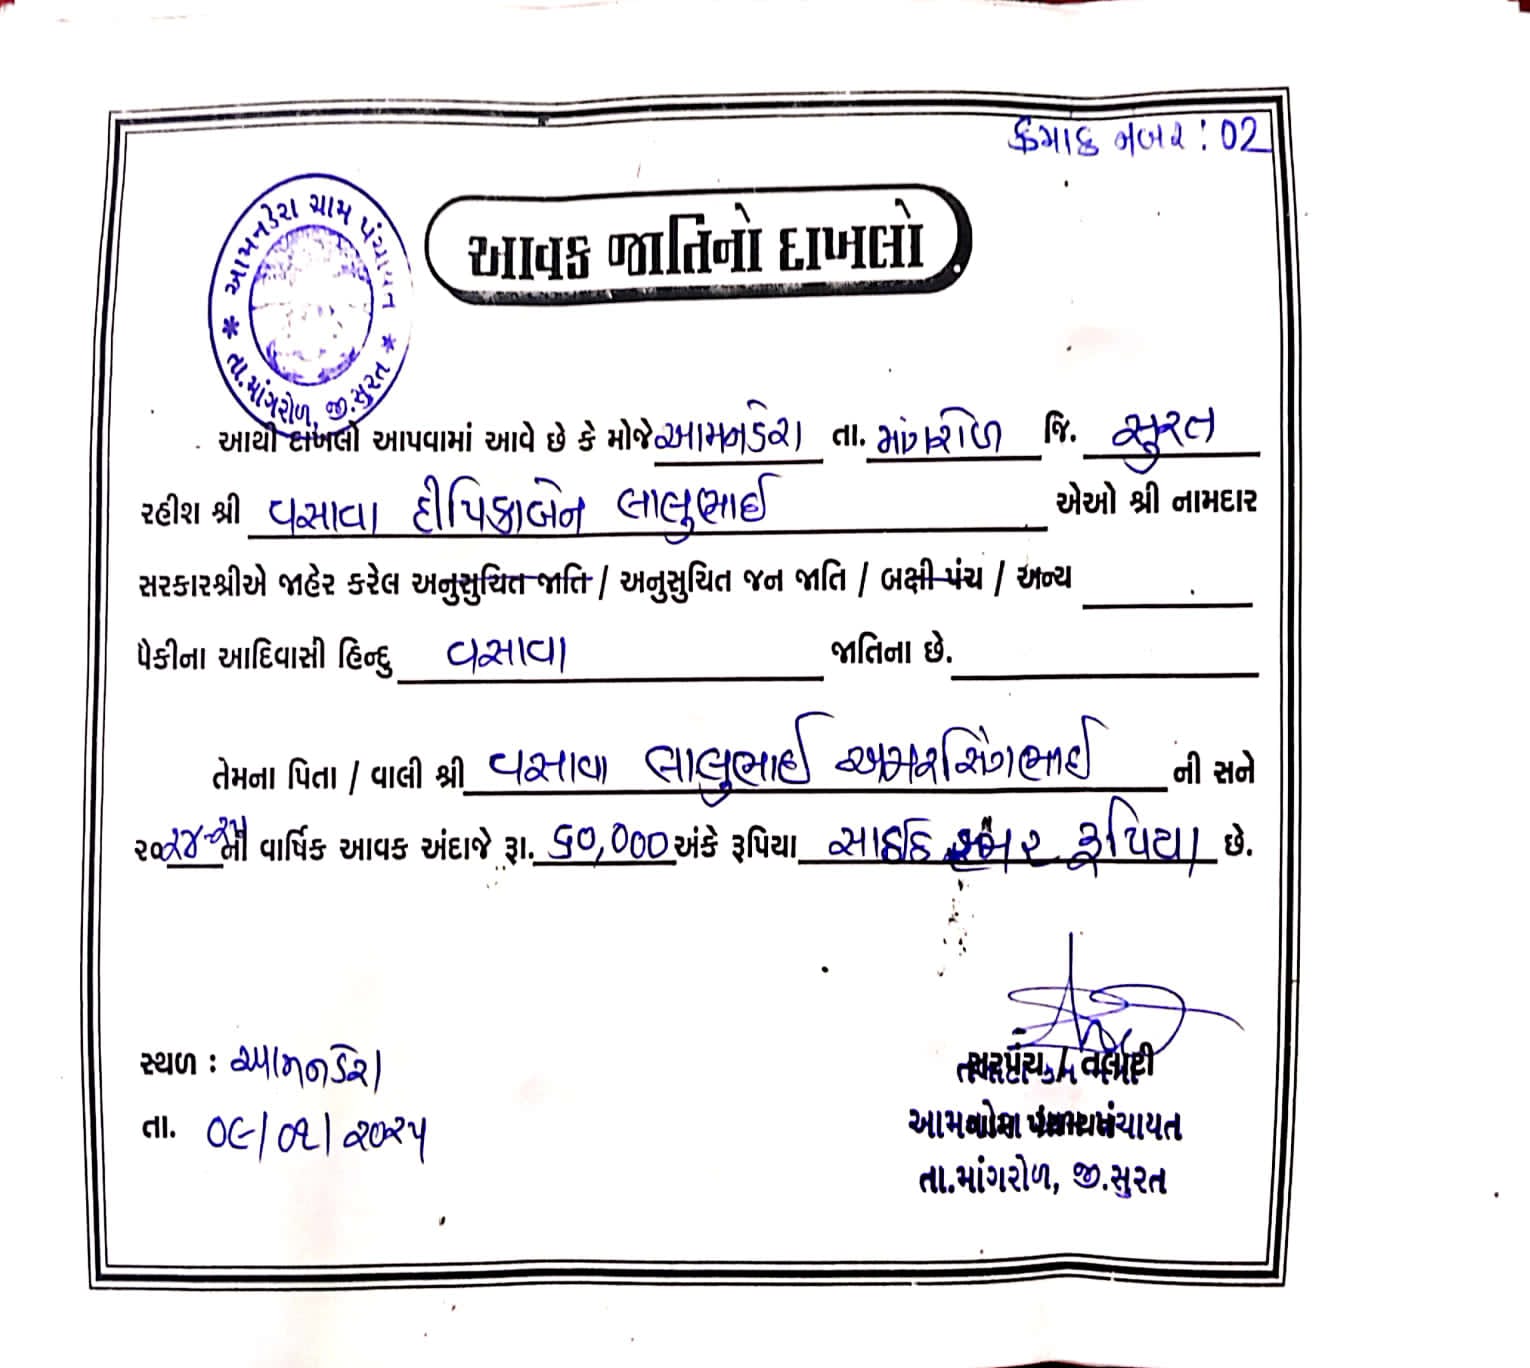 ક્રમાક નબર : 02
આમનડેરા ગ્રામ પંચાયત
* તા.માંગરોળ, જી.સુરત *
આવક જાતિનો દાખલો
આથી દાખલો આપવામાં આવે છે કે મોજે આમનડેરા તા. માંગરોળ જિ. સુરત
રહીશ શ્રી વસાવા દીપિકાબેન લાલુભાઈ એઓ શ્રી નામદાર
સરકારશ્રીએ જાહેર કરેલ અનુસુચિત જાતિ / અનુસુચિત જન જાતિ / બક્ષી પંચ / અન્ય
પૈકીના આદિવાસી હિન્દુ વસાવા જાતિના છે.
તેમના પિતા / વાલી શ્રી વસાવા લાલુભાઈ અમરસિંગભાઈ ની સને
૨૦૨૪-૨૫ની વાર્ષિક આવક અંદાજે રૂા. ૬૦,૦૦૦ અંકે રૂપિયા સાઈઠ હજાર રૂપિયા છે.
સ્થળ : આમનડેરા
તા. ૦૯/૦૧/૨૦૨૫
સરપંચ / તલાટી
તા.માંગરોળ, જી.સુરત